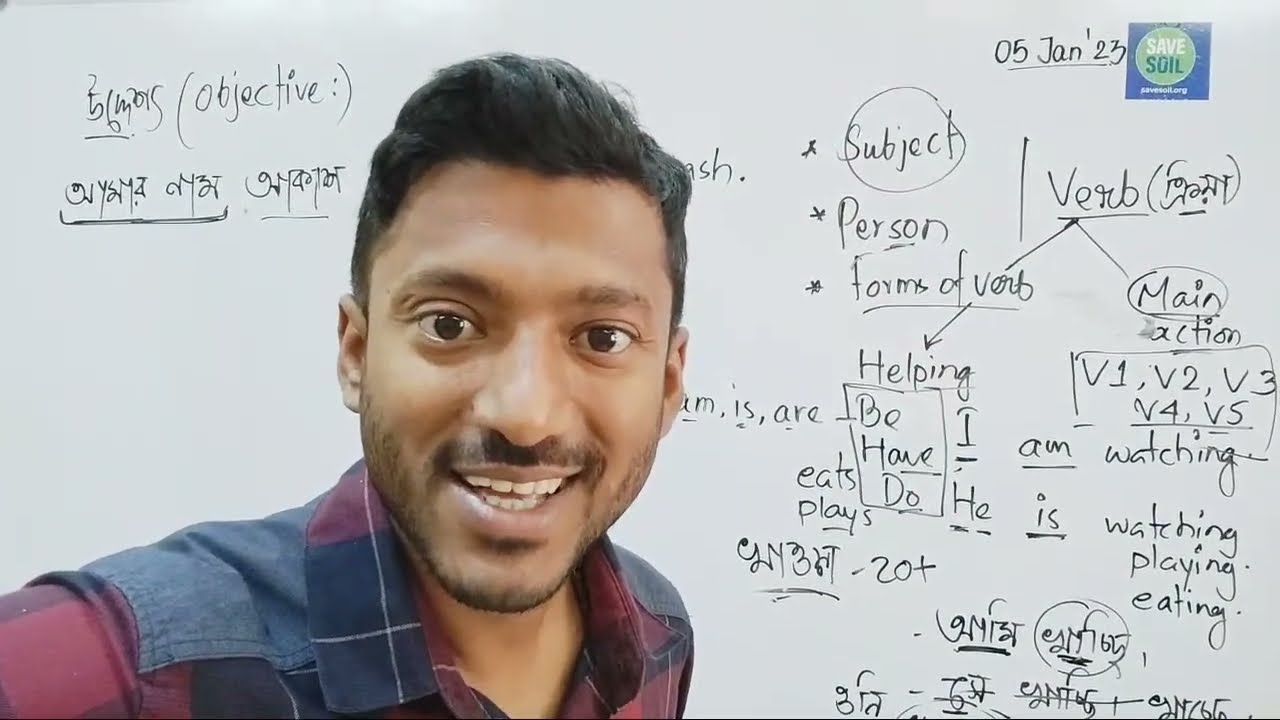 উদ্দেশ্য (objective:)
আমার নাম আকাশ
ash.
05 Jan'23
SAVE
SOIL
savesoil.org
* Subject
Verb (ক্রিয়া)
* Person
* Forms of verb
Main
action
Helping
V1, V2, V3
V4, V5
am, is, are - Be
Have
Do
I am watching.
eats
plays
He is watching
playing.
eating.
খাওয়া - 20+
- আমি খাচ্ছি,